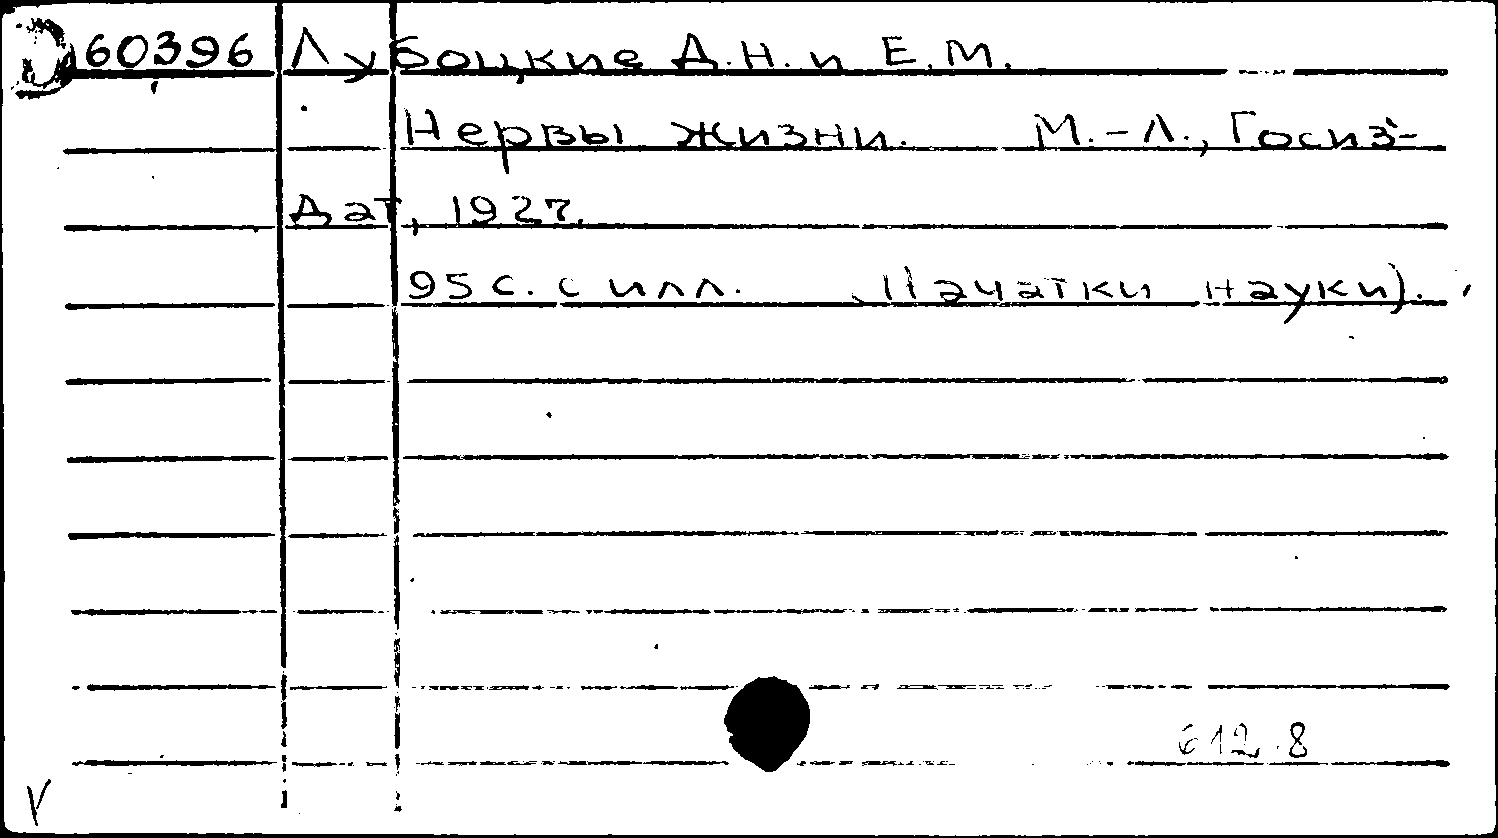 60396 Лубоцкие Д.Н. и Е.М.
Нервы жизни. М.-Л., Госиз-
дат, 1927.
95 с. с илл. (Начатки науки).
612.8